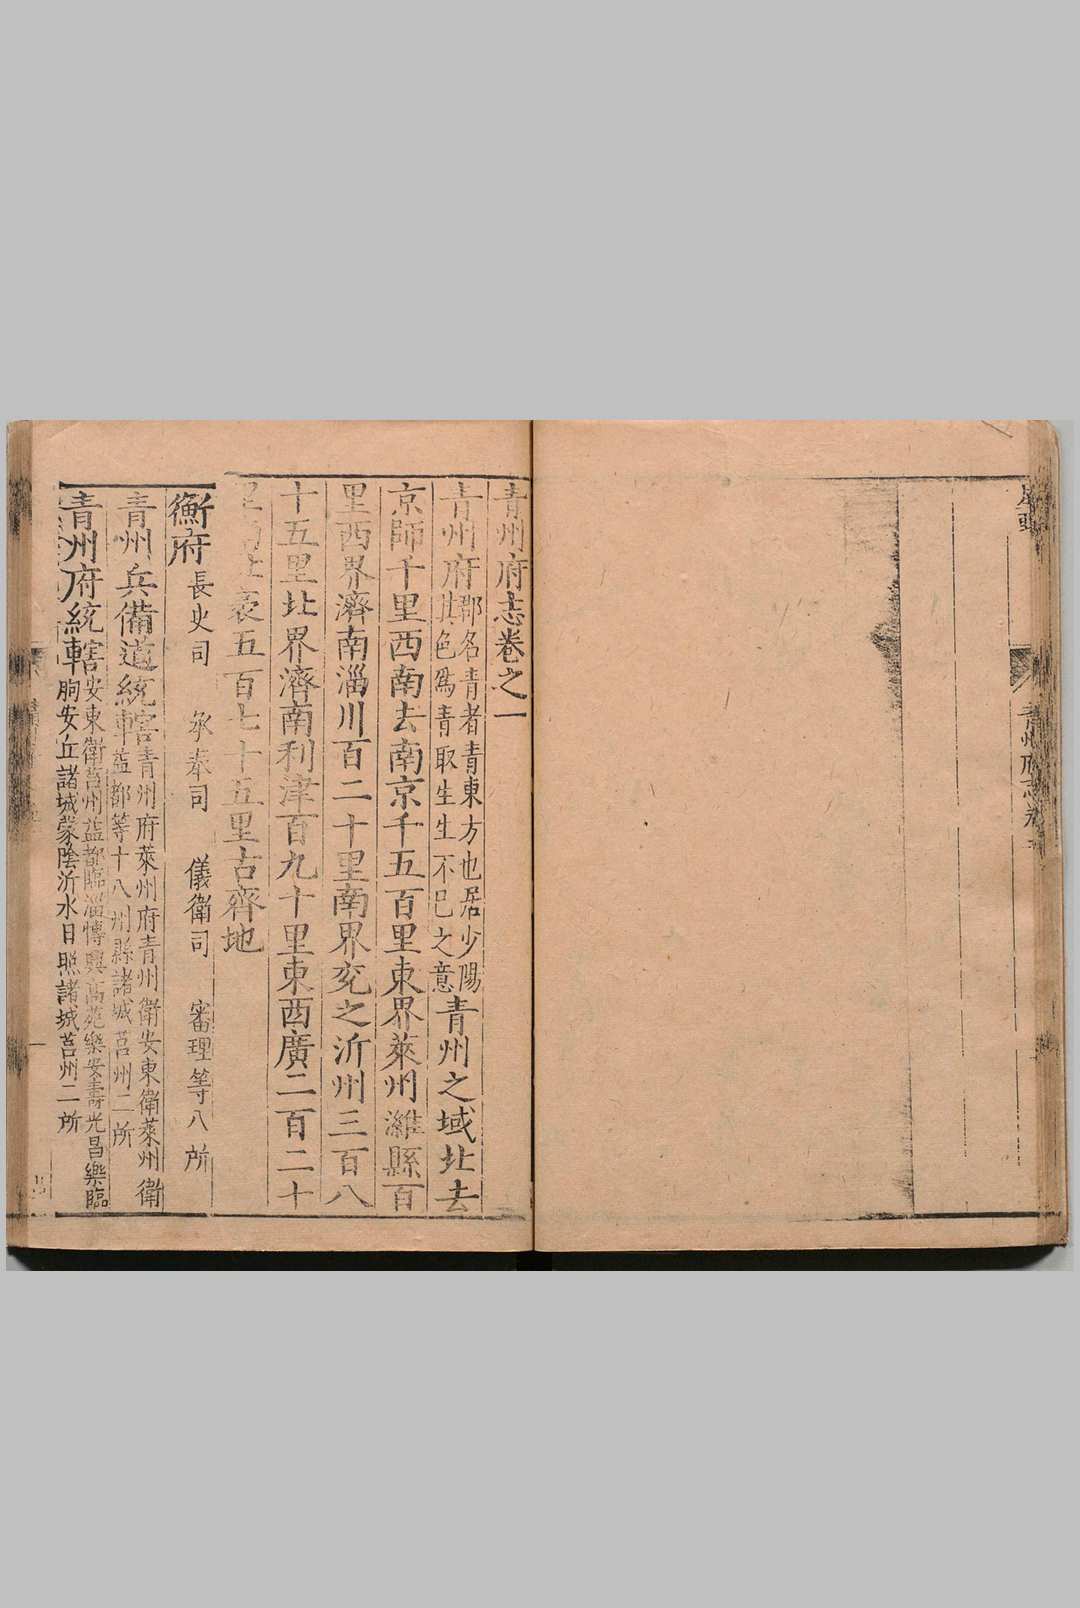 青州府志卷
青州府志卷之一
青州府郡名青者青東方也居少陽其色爲青取生生不已之意青州之域北去
京師千里西南去南京千五百里東界萊州濰縣百
里西界濟南淄川百二十里南界兖之沂州三百八
十五里北界濟南利津百九十里東西廣二百二十
里南北袤五百七十五里古齊地
衡府長史司 承奉司 儀衛司 審理等八所
青州兵備道統轄青州府萊州府青州衛安東衛萊州衛益都等十八州縣諸城莒州二所
青州府統轄安東衛莒州益都臨淄博興高苑樂安壽光昌樂臨朐安丘諸城蒙陰沂水日照諸城莒州二所